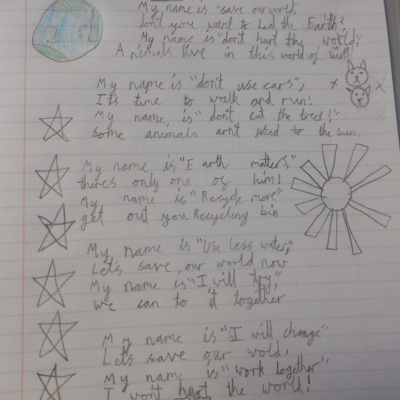 My name is "save our world"
don't you want to heal the Earth?
My name is "don't hurt the world;
Animals live in this world of
My name is "don't use cars",
It's time to walk and run!
My name, is "don't cut the trees!"
Some animals arn't used to the sun.
My name is "Earth matters"
there's only one of him!
My name is "Recycle more"
get out you Recycling bin
My name is "Use less water,"
Let's save our world now
My name is "I will try,"
we can to it together
My name is "I will change"
Let's save our wold,
My name is "work together,"
I won't hurt the world!